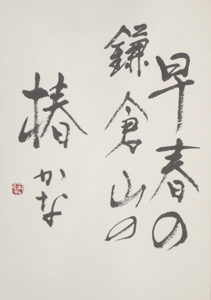 早春の
鎌倉山の
椿かな